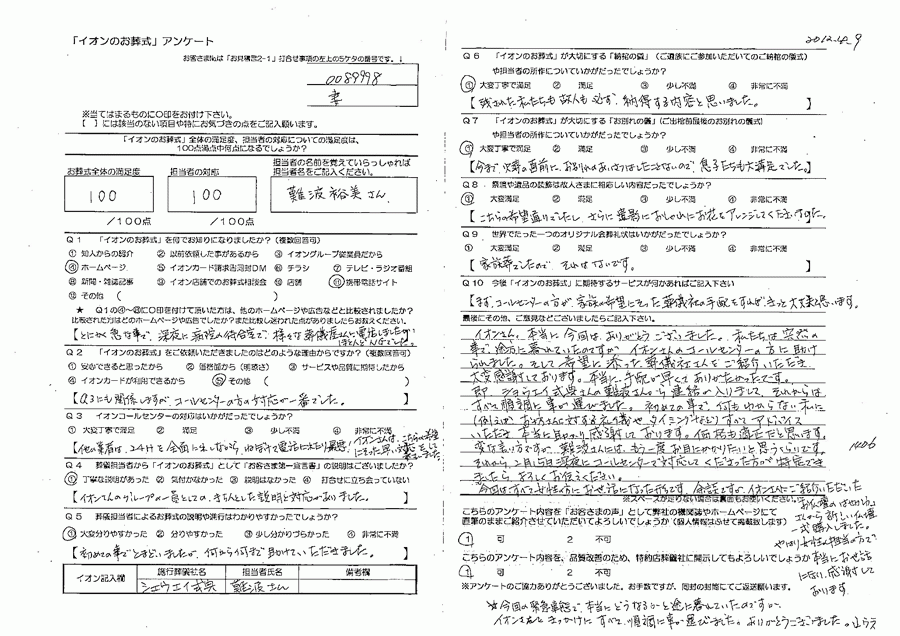 「イオンのお葬式」アンケート
お客さまNo.は「お見積書2-1」打合せ事項の左上の5ケタの番号です。↓
0089998
妻
※当てはまるものに○印をお付け下さい。
【 】には該当のない項目や特にお気づきの点をご記入願います。
「イオンのお葬式」全体の満足度、担当者の対応についての満足度は、
100点満点中何点になるでしょうか?
お葬式全体の満足度
100
/100点
担当者の対応
100
/100点
担当者の名前を覚えていらっしゃれば
担当者名をご記入ください。
難波裕美さん
Q1 「イオンのお葬式」を何でお知りになりましたか?(複数回答可)
① 知人からの紹介 ② 以前依頼した事があるから ③ イオングループ従業員だから
④ ホームページ ⑤ イオンカード請求書同封DM ⑥ チラシ ⑦ テレビ・ラジオ番組
⑧ 新聞・雑誌記事 ⑨ イオン店舗でのお葬式相談会 ⑩ 店舗 ⑪ 携帯電話サイト
⑫ その他 ( )
★ Q1の④~⑪に○印を付けて頂いた方は、他のホームページなどと比較されましたか?
比較された方はどのホームページや広告でしたか?また比較し迷われた点がありましたらお教えください。
【とにかく急な事で、深夜に病院の待合室で、様々な葬儀屋さんに電話しましたが
Q2 「イオンのお葬式」をご依頼いただきましたのはどのような理由からですか?(複数回答可)
① 安心できると思ったから ② 価格面から(明瞭さ) ③ サービスや品質に期待したから
④ イオンカードが利用できるから ⑤ その他 ( )
【Q3にも関係しますが、コールセンターの方の対応が一番でした。】
Q3 イオンコールセンターの対応はいかがだったでしょうか?
① 大変丁寧で満足 ② 満足 ③ 少し不満 ④ 非常に不満
Q4 葬儀担当者から「イオンのお葬式」として「お客さま第一宣言書」の説明はございましたか?
① 丁寧な説明があった ② 気付かなかった ③ 説明はなかった ④ 打合せに立ち会っていない
【イオンさんのグループの一員としての、きちんとした説明と対応がありました。】
Q5 葬儀担当者によるお葬式の説明や進行はわかりやすかったでしょうか?
① 大変分りやすかった ② 分りやすかった ③ 少し分かりづらかった ④ 非常に不満
【初めての事でとまどいましたが、何から何まで助けていただきました。】
イオン記入欄
施行葬儀社名
担当者氏名
備考欄
シュウエイ式典
難波さん
2012.4.9
Q6 「イオンのお葬式」が大切にする「納棺の儀」(ご遺族にご参加いただいてのご納棺の儀式)
や担当者の所作についていかがだったでしょうか?
① 大変丁寧で満足 ② 満足 ③ 少し不満 ④ 非常に不満
【残された私たちも故人も必ず、納得する内容と思いました。】
Q7 「イオンのお葬式」が大切にする「お別れの儀」(ご出棺前最後のお別れの儀式)
や担当者の所作についていかがだったでしょうか?
① 大変丁寧で満足 ② 満足 ③ 少し不満 ④ 非常に不満
【今まで、火葬の直前に、お別れのあいさつはしたことないので、息子たちも大満足でした。】
Q8 祭壇や遺品の装飾は故人さまに相応しい内容だったでしょうか?
① 大変満足 ② 満足 ③ 少し不満 ④ 非常に不満
【こちらの希望通りでしたし、さらに豪華におしゃれにお花をアレンジしてくださいました。】
Q9 世界でたった一つのオリジナル会葬礼状はいかがだったでしょうか?
① 大変満足 ② 満足 ③ 少し不満 ④ 非常に不満
【家族葬でしたので、それはないです。】
Q10 今後「イオンのお葬式」に期待するサービスが何かあればご記入下さい
【まず、コールセンターの方が家族の希望にそった葬儀社の手配をすれば、きっと大丈夫と思います。
最後にその他、ご意見などございましたらご記入下さい。
イオンさん、本当に今回は、ありがとうございました。私たちは突然の
事で、途方に暮れていたのですが、イオンさんのコールセンターの方に助け
られました。そして希望に添った葬儀社さんをご紹介いただき、
大変感謝しております。本当に、手配が早くてありがたかったです。
即、シュウエイ式典さんの難波さんから連絡が入りまして、それからは
すべて順調に事が運びました。初めての事で、何もわからない私に
(例えば、お坊さんに対するお礼儀や、タイミングなど)すべてアドバイス
いただき、本当に助かり、感謝しております。価格も適正だと思います。
変な言い方ですが、難波さんには、もう一度お目にかかりたいと思うくらいです。
それから、2月15日深夜にコールセンターで対応してくださった方が特定でき
ましたら、よろしくお伝えください。
1406
※スペースが足りない場合は裏面もお使いください。
こちらのアンケート内容を「お客さまの声」として弊社の機関誌やホームページにて
直筆のままご紹介させていただいてよろしいでしょうか(個人情報はふせて掲載致します)
1 可 2 不可
こちらのアンケート内容を、品質改善のため、特約店葬儀社に開示してもよろしいでしょうか
1 可 2 不可
※アンケートのご協力ありがとうございました。お手数ですが、同封の封筒にてご返送願います。
一式購入しました。
やはり女性の担当の方で
本当にお世話
になり、感謝して
おります。
★今回の緊急事態で、本当にどうなるかと途に暮れていたのですが、
イオンさんをきっかけにすべて、順調に事が運びました。ありがとうございました。